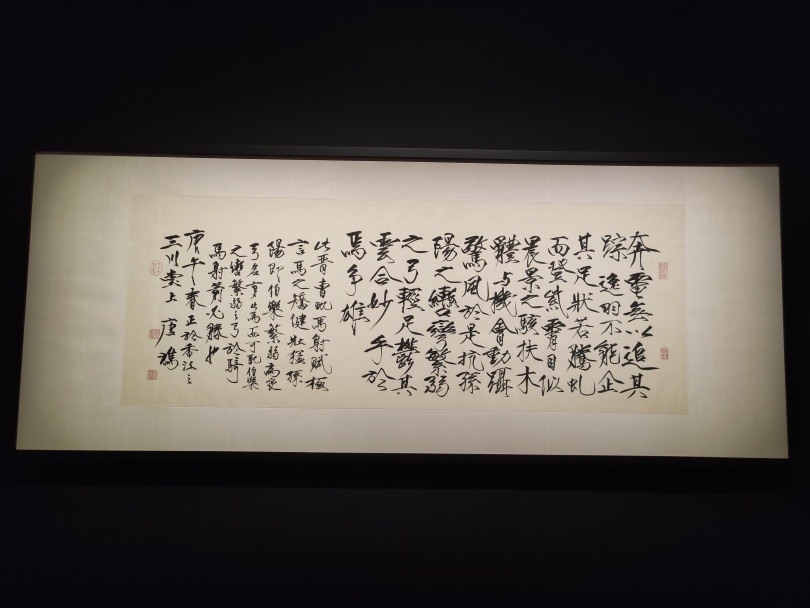 奔電無以追其
踪逸羽不能企
其足狀若騰虬
而登紫霄目似
晨景之駭扶木
體與機會動躡
驚風於是抗孫
陽之轡彎繁弱
之弓輕足鬱其
雲合妙手於
焉爭雄
此晉曹毗馬射賦極
言馬之矯健壯猛孫
陽即伯樂繁弱為良
弓名實此馬亦可配伯樂
之轡繁弱之弓於騎
馬射箭尤勝也
庚午春正於香江之
三川堂上 唐